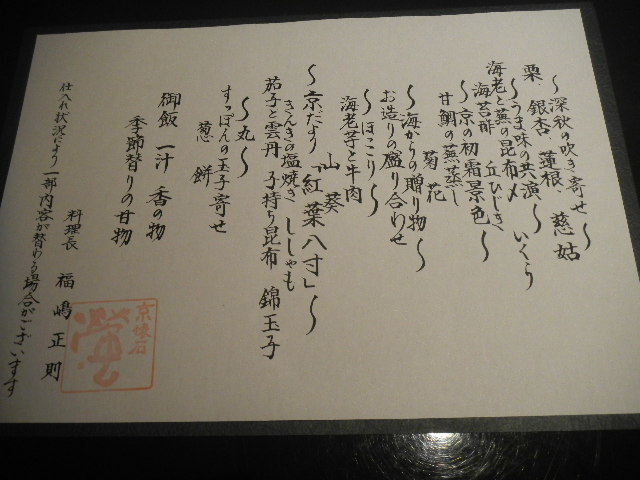 ～深秋の吹き寄せ～
栗 銀杏 蓮根 慈姑
～うま味の共演～
海老と蕪の昆布〆 いくら
海苔酢 丘ひじき
～京の初霜景色～
甘鯛の蕪蒸し
菊花
～海からの贈り物～
お造りの盛り合わせ
～ほっこり～
海老芋と牛肉
山葵
～京だより「紅葉八寸」～
きんきの塩焼き ししゃも
茄子と雲丹 子持ち昆布 錦玉子
～丸～
すっぽんの玉子寄せ
葱 餅
御飯 一汁 香の物
季節替りの甘物
料理長 福嶋正則
仕入れ状況により一部内容が替わる場合がございます
京懐石